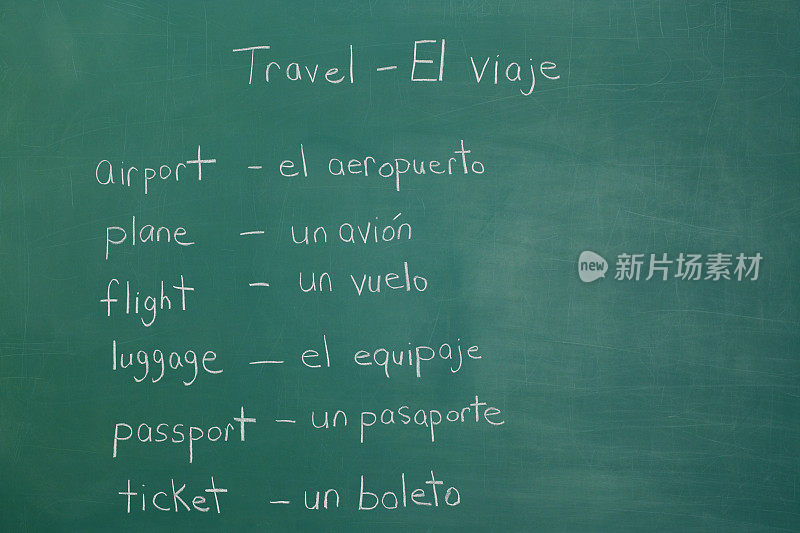 Travel - El viaje
airport - el aeropuerto
plane - un avión
flight - un vuelo
new 新片场素材
luggage - el equipaje
passport - un pasaporte
ticket - un boleto